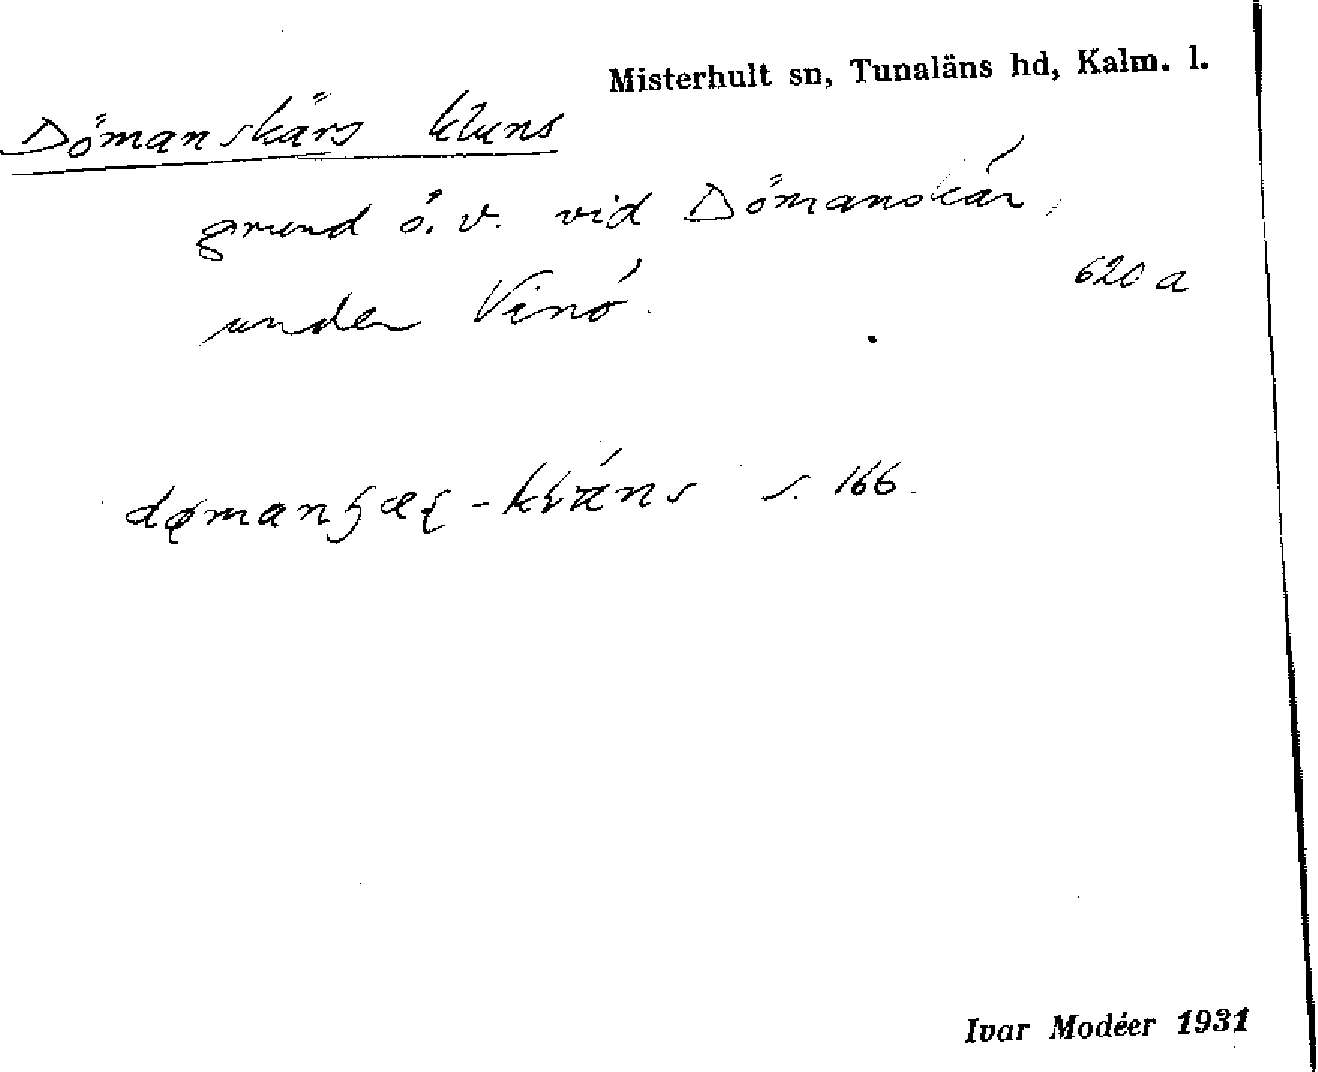 Misterhult sn, Tunaläns hd, Kalm. l.
Dömanskärs kluns
grund ö. v. vid Dömanskär,
620 a
under Vinö.
s. 166
Ivar Modéer 1931